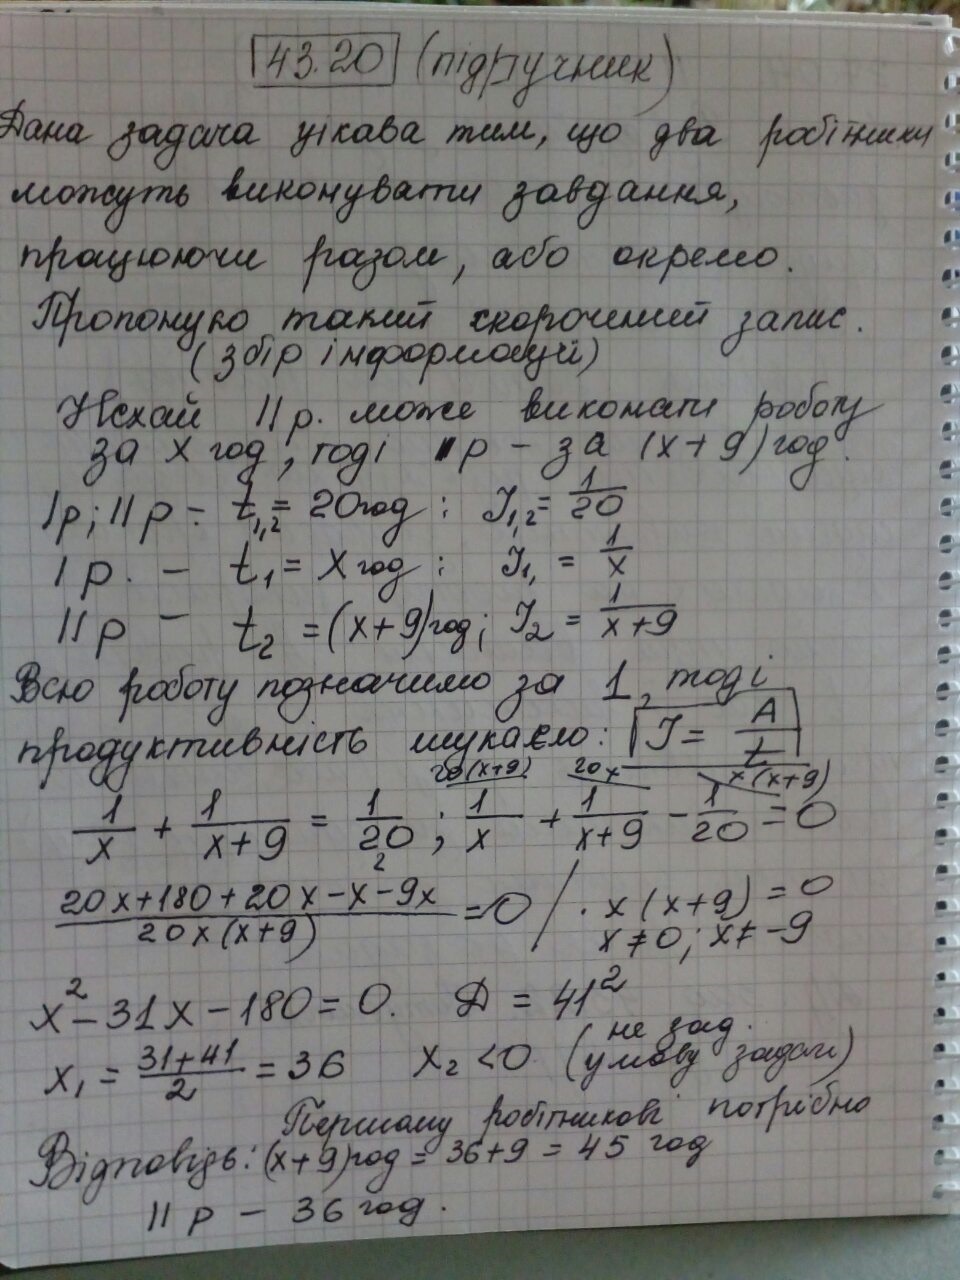 43.20 (підручник)
Дана задача цікава тим, що два робітники
можуть виконувати завдання,
працюючи разом, або окремо.
Пропоную такий скорочений запис.
(збір інформації)
Нехай II р. може виконати роботу
за x год, тоді I р – за (x+9) год.
I р; II р – t₁,₂ = 20 год; J₁,₂ = 1/20
I р. – t₁ = x год; J₁, = 1/x
II р – t₂ = (x+9) год; J₂ = 1/(x+9)
Всю роботу позначимо за 1, тоді
продуктивність шукаємо: J = A/t
20(x+9) 20x x(x+9)
1/x + 1/(x+9) = 1/20; 1/x + 1/(x+9) - 1/20 = 0
(20x+180+20x-x²-9x)/(20x(x+9)) = 0 / · x(x+9) = 0
x≠0; x≠-9
x² - 31x - 180 = 0. Д = 41²
x₁ = (31+41)/2 = 36 x₂ < 0 (не зад.
умову задачі)
Першому робітникові потрібно
Відповідь: (x+9) год = 36+9 = 45 год
II р – 36 год.